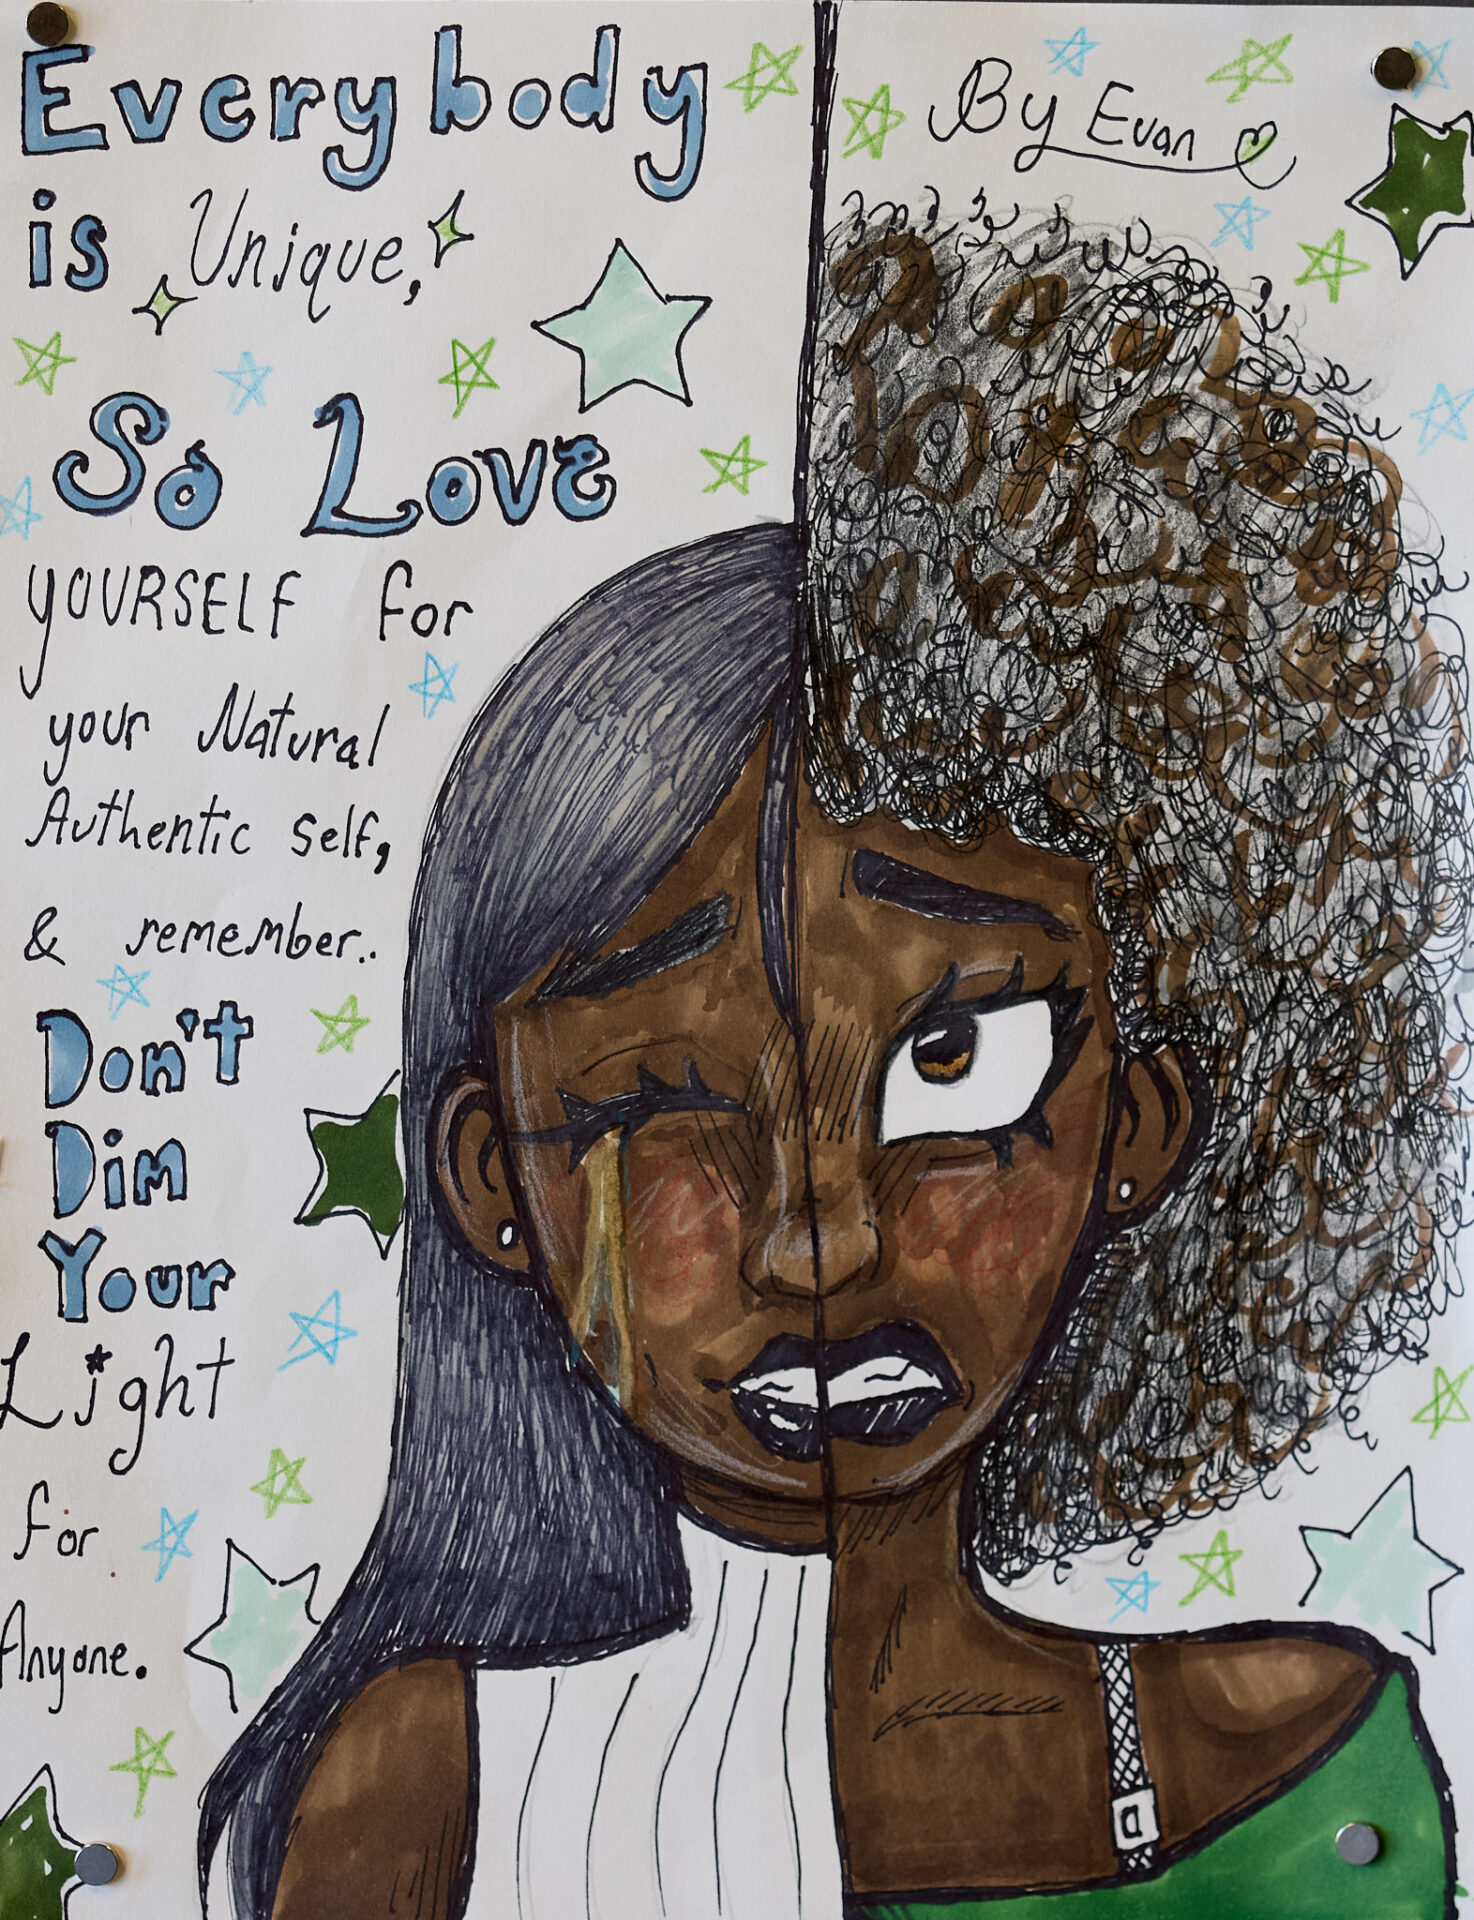 Everybody
is Unique,
So Love
YOURSELF for
your Natural
Authentic self,
& remember..
Don't
Dim
Your
Light
for
Anyone.
By Evan